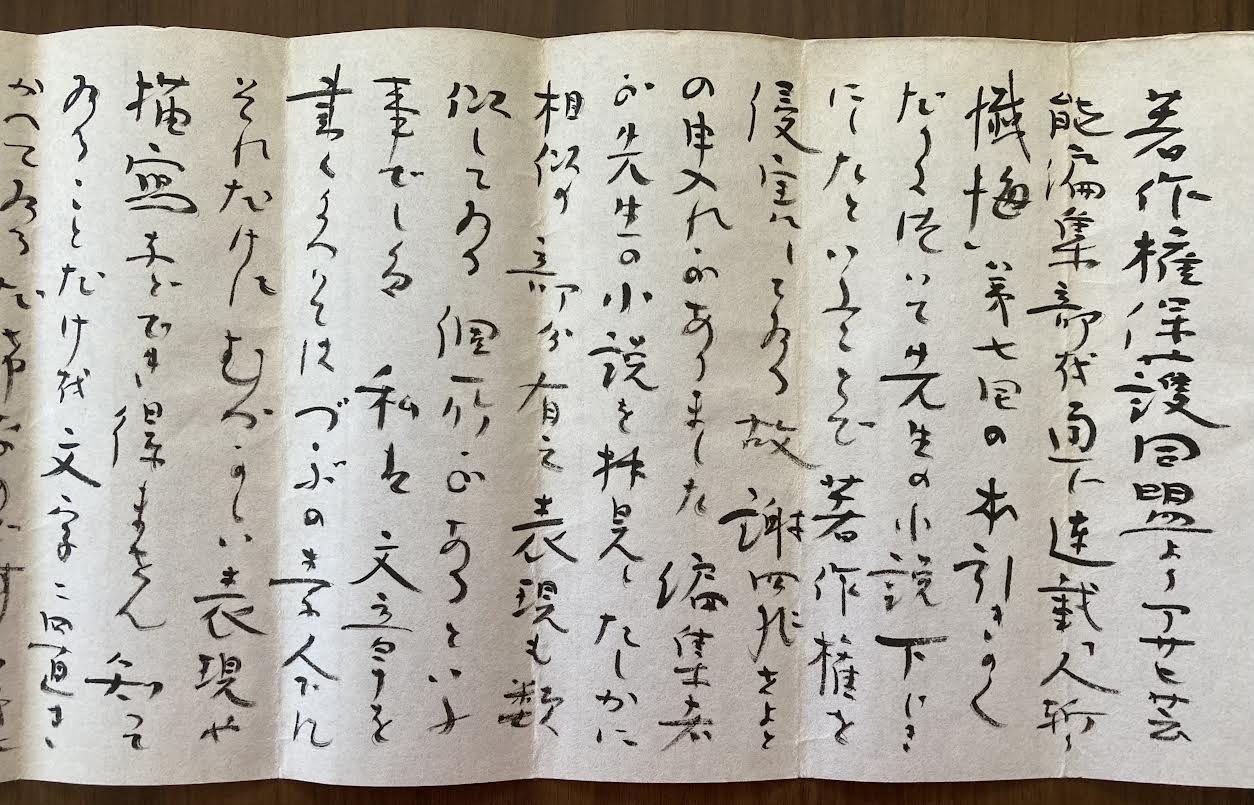 著作権保護同盟よりアサヒ芸
能編集部我通じ連載「人斬り
懺悔」第七回の本引きのく
だりに於いて先生の小説下じき
にしたといふことで著作権を
侵害してゐる故謝罪せよと
の申入れがありました 編集者
が先生の小説を拝見したしかに
相似の部分有之表現も類
似してゐる個所があるといふ
事でした 私は文章を
書くといつてはづぶの素人でれ
それだけにむづかしい表現や
描写などでき得ません 知つて
ゐることだけ我文字に四直き
かへてゐる